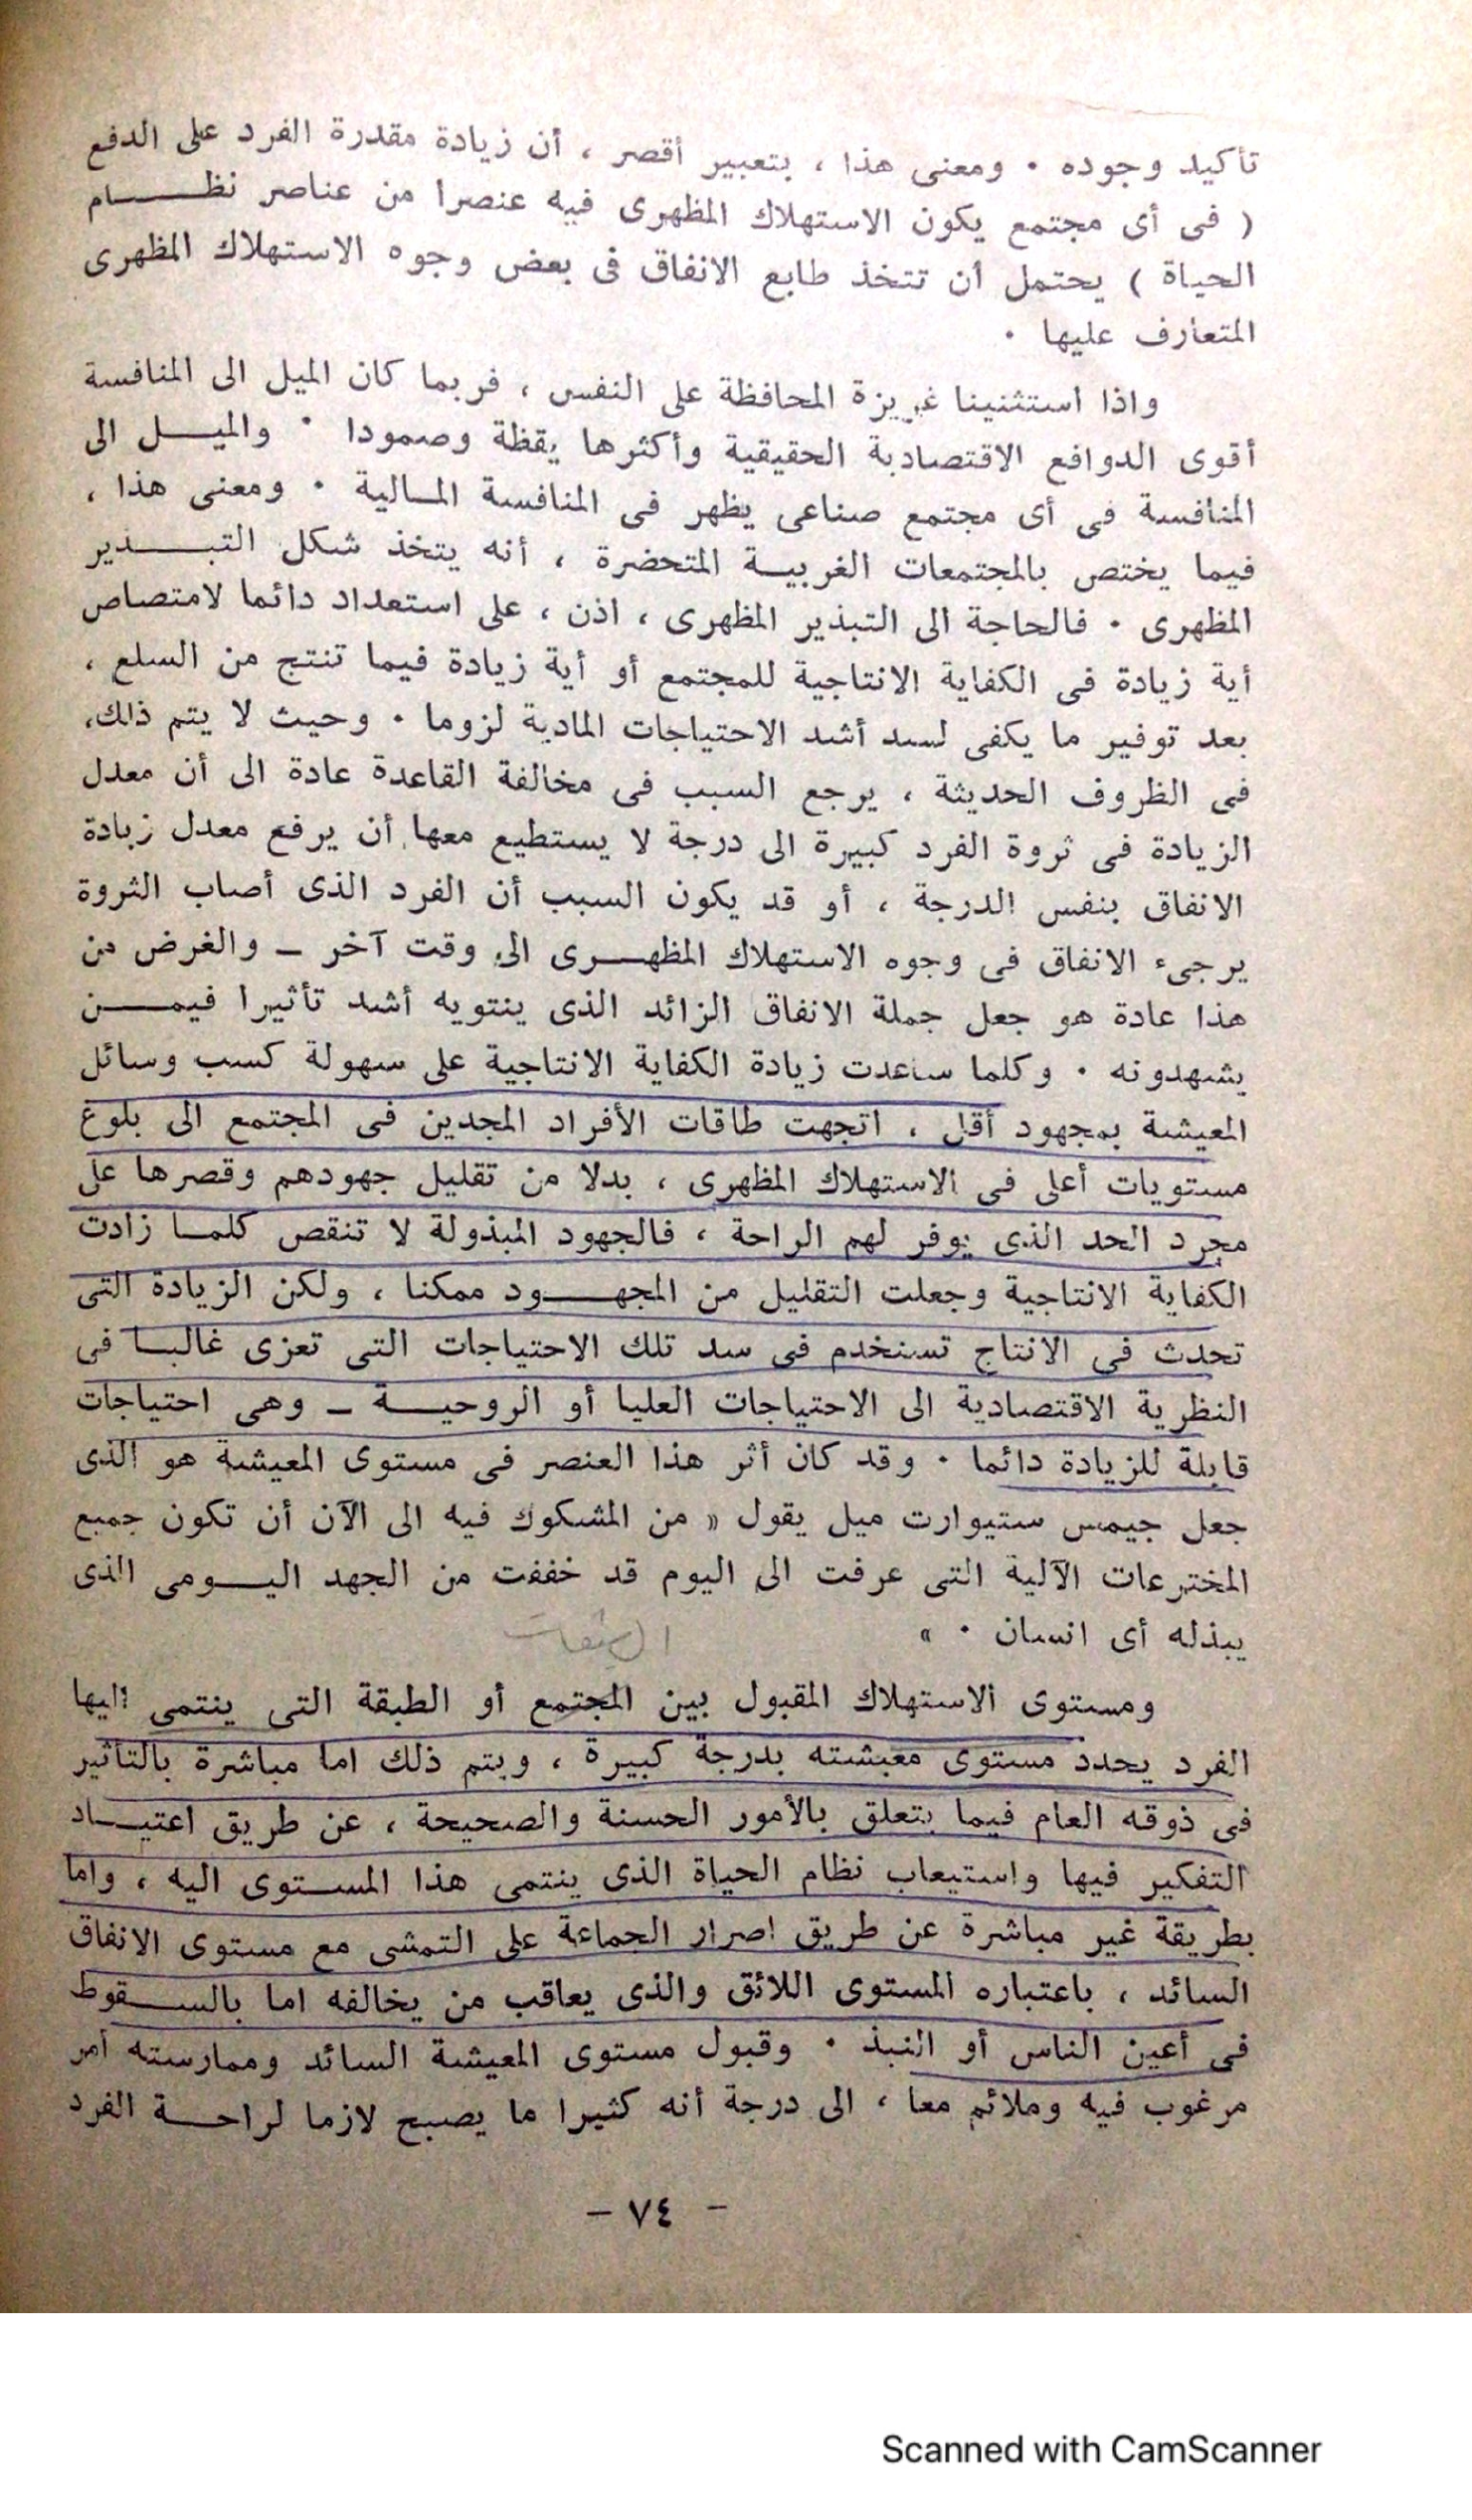 تأكيد وجوده . ومعنى هذا ، بتعبير أقصر ، أن زيادة مقدرة الفرد على الدفع
( فى أى مجتمع يكون الاستهلاك المظهرى فيه عنصرا من عناصر نظــــام
الحياة ) يحتمل أن تتخذ طابع الانفاق فى بعض وجوه الاستهلاك المظهرى
المتعارف عليها .
واذا استثنينا غريزة المحافظة على النفس ، فربما كان الميل الى المنافسة
أقوى الدوافع الاقتصادية الحقيقية وأكثرها يقظة وصمودا . والميــل الى
المنافسة فى أى مجتمع صناعى يظهر فى المنافسة المـالية . ومعنى هذا ،
فيما يختص بالمجتمعات الغربيـة المتحضرة ، أنه يتخذ شكل التبــــذير
المظهرى . فالحاجة الى التبذير المظهرى ، اذن ، على استعداد دائما لامتصاص
أية زيادة فى الكفاية الانتاجية للمجتمع أو أية زيادة فيما تنتج من السلع ،
بعد توفير ما يكفى لسد أشد الاحتياجات المادية لزوما . وحيث لا يتم ذلك،
فى الظروف الحديثة ، يرجع السبب فى مخالفة القاعدة عادة الى أن معدل
الزيادة فى ثروة الفرد كبيرة الى درجة لا يستطيع معها أن يرفع معدل زيادة
الانفاق بنفس الدرجة ، أو قد يكون السبب أن الفرد الذى أصاب الثروة
يرجىء الانفاق فى وجوه الاستهلاك المظهــرى الى وقت آخر ـ والغرض من
هذا عادة هو جعل جملة الانفاق الزائد الذى ينتويه أشد تأثيرا فيمــــن
يشهدونه . وكلما ساعدت زيادة الكفاية الانتاجية على سهولة كسب وسائل
المعيشة بمجهود أقل ، اتجهت طاقات الأفراد المجدين فى المجتمع الى بلوغ
مستويات أعلى فى الاستهلاك المظهرى ، بدلا من تقليل جهودهم وقصرها على
مجرد الحد الذى يوفر لهم الراحة ، فالجهود المبذولة لا تنقص كلمـا زادت
الكفاية الانتاجية وجعلت التقليل من المجهــــود ممكنا ، ولكن الزيادة التى
تحدث فى الانتاج تستخدم فى سد تلك الاحتياجات التى تعزى غالبـا فى
النظرية الاقتصادية الى الاحتياجات العليا أو الروحيـــة ـ وهى احتياجات
قابلة للزيادة دائما . وقد كان أثر هذا العنصر فى مستوى المعيشة هو الذى
جعل جيمس ستيوارت ميل يقول « من المشكوك فيه الى الآن أن تكون جميع
المخترعات الآلية التى عرفت الى اليوم قد خففت من الجهد اليــومى الذى
يبذله أى انسان . »
ومستوى الاستهلاك المقبول بين المجتمع أو الطبقة التى ينتمى اليها
الفرد يحدد مستوى معيشته بدرجة كبيرة ، ويتم ذلك اما مباشرة بالتأثير
فى ذوقه العام فيما يتعلق بالأمور الحسنة والصحيحة ، عن طريق اعتيــاد
التفكير فيها واستيعاب نظام الحياة الذى ينتمى هذا المسـتوى اليه ، واما
بطريقة غير مباشرة عن طريق اصرار الجماعة على التمشى مع مستوى الانفاق
السائد ، باعتباره المستوى اللائق والذى يعاقب من يخالفه اما بالســقوط
فى أعين الناس أو النبذ . وقبول مستوى المعيشة السائد وممارسته أمر
مرغوب فيه وملائم معا ، الى درجة أنه كثيرا ما يصبح لازما لراحــة الفرد
- ٧٤ -
Scanned with CamScanner